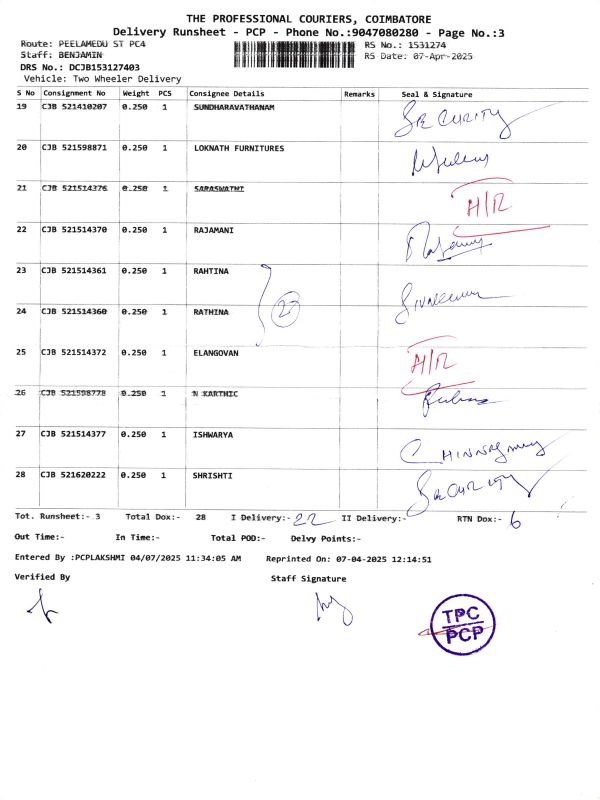 THE PROFESSIONAL COURIERS, COIMBATORE
Delivery Runsheet - PCP - Phone No.:9047080280 - Page No.:3
Route: PEELAMEDU ST PC4 RS No.: 1531274
Staff: BENJAMIN RS Date: 07-Apr-2025
DRS No.: DCJB153127403
Vehicle: Two Wheeler Delivery
S No Consignment No Weight PCS Consignee Details Remarks Seal & Signature
19 CJB 521410207 0.250 1 SUNDHARAVATHANAM SECURITY
20 CJB 521598871 0.250 1 LOKNATH FURNITURES
21 CJB 521514376 0.250 1 SARASWATHI H/R
22 CJB 521514370 0.250 1 RAJAMANI
23 CJB 521514361 0.250 1 RAHTINA
24 CJB 521514360 0.250 1 RATHINA
25 CJB 521514372 0.250 1 ELANGOVAN H/R
26 CJB 521598778 0.250 1 N KARTHIC
27 CJB 521514377 0.250 1 ISHWARYA
28 CJB 521620222 0.250 1 SHRISHTI SECURITY
Tot. Runsheet:- 3 Total Dox:- 28 I Delivery:- 22 II Delivery:- RTN Dox:- 6
Out Time:- In Time:- Total POD:- Delvy Points:-
Entered By :PCPLAKSHMI 04/07/2025 11:34:05 AM Reprinted On: 07-04-2025 12:14:51
Verified By Staff Signature
TPC
PCP